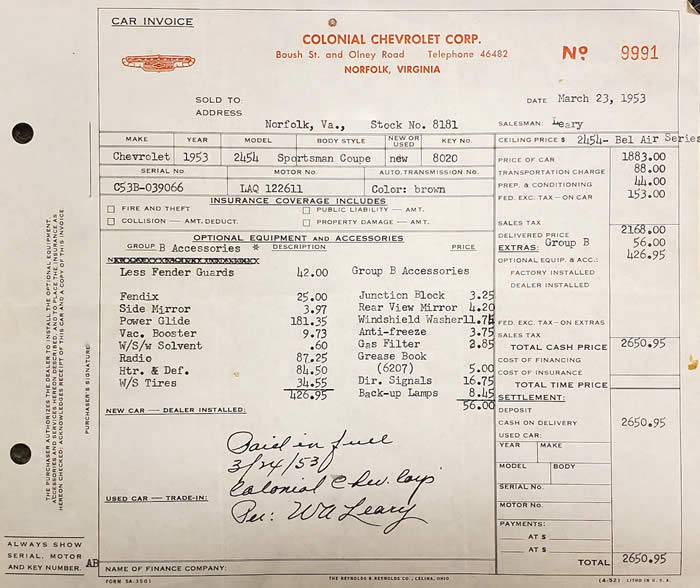 CAR INVOICE
COLONIAL CHEVROLET CORP.
Boush St. and Olney Road Telephone 46482
NORFOLK, VIRGINIA
No 9991
SOLD TO:
ADDRESS
DATE March 23, 1953
Norfolk, Va., Stock No. 8181
SALESMAN: Leary
MAKE YEAR MODEL BODY STYLE NEW OR USED KEY NO.
CEILING PRICE $ 2454- Bel Air Series
Chevrolet 1953 2454 Sportsman Coupe new 8020
PRICE OF CAR 1883.00
SERIAL NO. MOTOR NO. AUTO. TRANSMISSION NO.
TRANSPORTATION CHARGE 88.00
C53B-039066 LAQ 122611 Color: brown
PREP. & CONDITIONING 44.00
FED. EXC. TAX — ON CAR 153.00
INSURANCE COVERAGE INCLUDES
FIRE AND THEFT PUBLIC LIABILITY — AMT.
COLLISION — AMT. DEDUCT. PROPERTY DAMAGE — AMT.
SALES TAX
DELIVERED PRICE 2168.00
OPTIONAL EQUIPMENT AND ACCESSORIES
EXTRAS: Group B 56.00
GROUP B Accessories * DESCRIPTION PRICE
OPTIONAL EQUIP. & ACC.: 426.95
FACTORY INSTALLED
DEALER INSTALLED
Less Fender Guards 42.00 Group B Accessories
Fendix 25.00 Junction Block 3.25
Side Mirror 3.97 Rear View Mirror 4.20
Power Glide 181.35 Windshield Washer 11.75
Vac. Booster 9.73 Anti-freeze 3.75
W/S/w Solvent .60 Gas Filter 2.85
Radio 87.25 Grease Book
Htr. & Def. 84.50 (6207) 5.00
W/S Tires 34.55 Dir. Signals 16.75
426.95 Back-up Lamps 8.45
56.00
FED. EXC. TAX — ON EXTRAS
SALES TAX
TOTAL CASH PRICE 2650.95
COST OF FINANCING
COST OF INSURANCE
TOTAL TIME PRICE
SETTLEMENT:
DEPOSIT
CASH ON DELIVERY 2650.95
USED CAR:
YEAR MAKE
MODEL BODY
SERIAL NO.
MOTOR NO.
PAYMENTS:
AT $
AT $
TOTAL 2650.95
NEW CAR — DEALER INSTALLED:
Paid in full
3/24/53
Colonial Chev. Corp
Per: WA Leary
USED CAR — TRADE-IN:
NAME OF FINANCE COMPANY:
FORM SA-3501
THE REYNOLDS & REYNOLDS CO., CELINA, OHIO
(4-52) LITHO IN U.S.A.
THE PURCHASER AUTHORIZES THE DEALER TO INSTALL THE OPTIONAL EQUIPMENT
ACCESSORIES AND SERVICES HEREON DESCRIBED, AND TO PLACE THE INSURANCE AS
HEREON CHECKED; ACKNOWLEDGES RECEIPT OF THIS CAR AND A COPY OF THIS INVOICE.
PURCHASER'S SIGNATURE
ALWAYS SHOW
SERIAL, MOTOR
AND KEY NUMBER.
AB